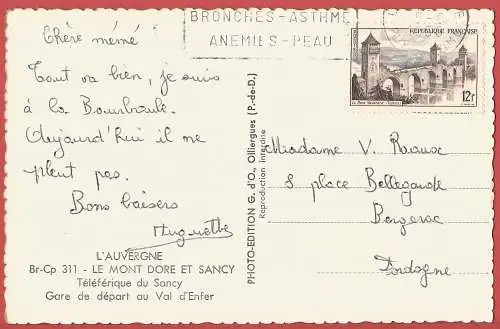 BRONCHES-ASTHME
ANEMIES-PEAU
REPUBLIQUE FRANÇAISE
12F
Chère mémé
Tout va bien, je suis
à la Bourboule.
Aujourd'hui il ne
pleut pas.
Bons baisers
Huguette
L'AUVERGNE
Br-Cp 311 - LE MONT DORE ET SANCY
Téléférique du Sancy
Gare de départ au Val d'Enfer
PHOTO-EDITION G. d'O., Olliergues (P.-de-D.)
Reproduction interdite
Madame V.
place Bellegarde
Bergerac
Dordogne